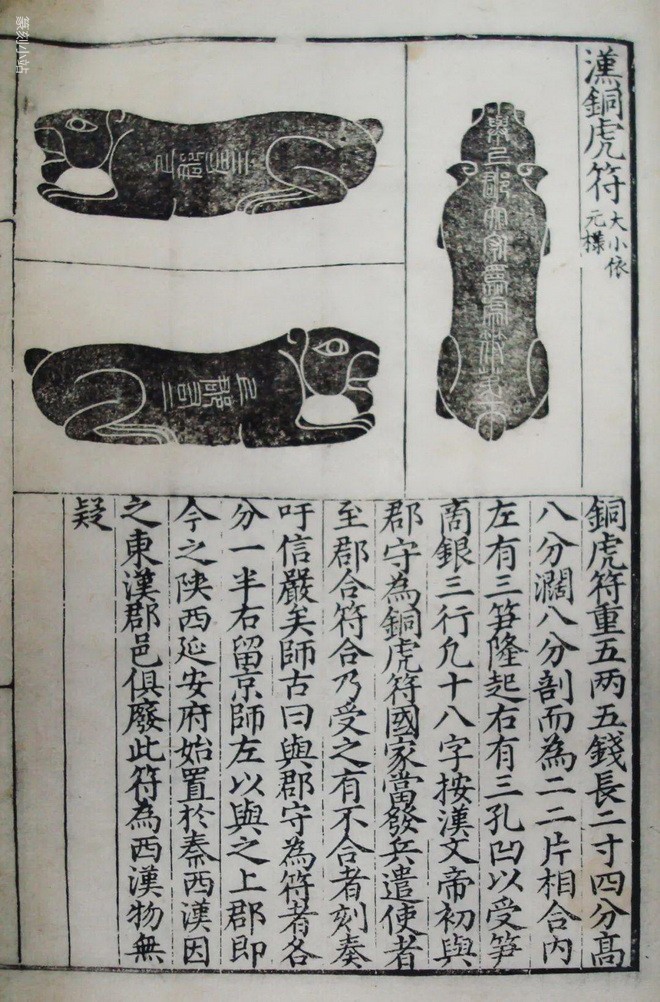 漢銅虎符大小依元㨾
與上郡太守為虎符
銅虎符重五两五錢長二寸四分髙
八分濶八分剖而為二二片相合内
左有三笋隆起右有三孔凹以受笋
啇銀三行凢十八字按漢文帝初與
郡守為銅虎符國家當發兵遣使者
至郡合符合乃受之有不合者刻奏
吁信嚴矣師古曰與郡守為符者各
分一半右留京師左以與之上郡即
今之陝西延安府始置於秦西漢因
之東漢郡邑俱廢此符為西漢物無
疑
篆刻小站